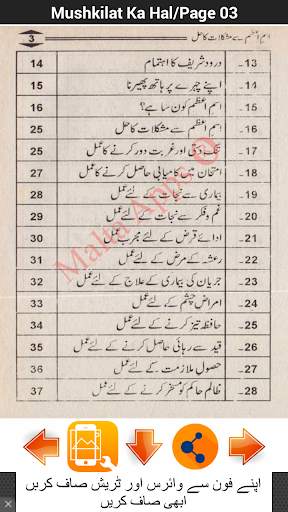 Mushkilat Ka Hal/Page 03
3 اسم اعظم سے مشکلات کا حل
13– درود شریف کا اہتمام 14
14– اپنے چہرے پر ہاتھ پھیرنا 15
15– اسم اعظم کون سا ہے؟ 16
16– اسم اعظم سے مشکلات کا حل 25
17– تنگ دستی اور غربت دور کرنے کا عمل 25
18– امتحان میں کامیابی حاصل کرنے کا عمل 27
19– بیماری سے نجات کے لئے عمل 28
20– غم و فکر سے نجات کے لئے عمل 29
21– ادائے قرض کے لئے مجرب عمل 30
22– رعشہ کے مرض کے لئے عمل 31
23– جریان کی بیماری کے علاج کے لئے عمل 32
24– امراض چشم کے لئے عمل 33
25– حافظہ تیز کرنے کے لئے عمل 34
26– قید سے رہائی حاصل کرنے کے لئے عمل 35
27– حصول ملازمت کے لئے عمل 36
28– ظالم حاکم کو مسخر کرنے کے لئے عمل 37
Malta Apps ©
اپنے فون سے وائرس اور ٹریش صاف کریں
ابھی صاف کریں